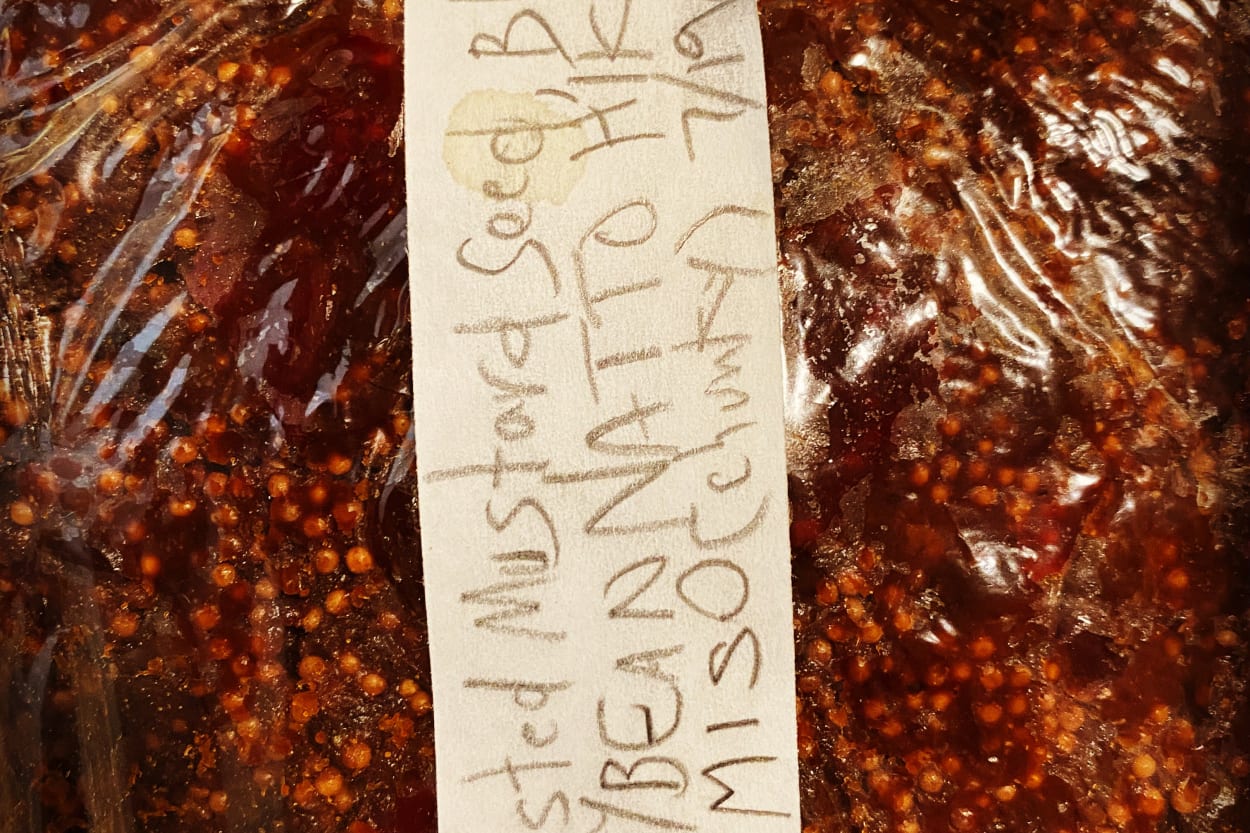 sted Mustard Seed, B
YBEAN NATTO HIK
MISO (chunky) 7/19